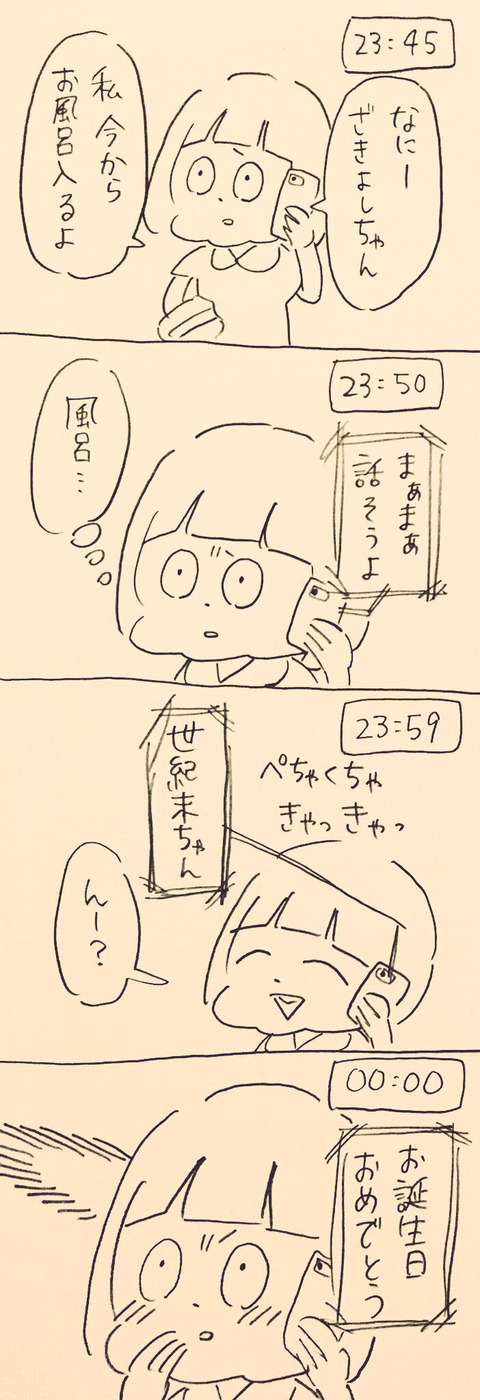 23:45
なにー
ざきよしちゃん
私 今から
お風呂入るよ
23:50
まぁまぁ
話そうよ
風呂…
23:59
ぺちゃくちゃ
きゃっきゃっ
世紀末ちゃん
んー?
00:00
お誕生日
おめでとう